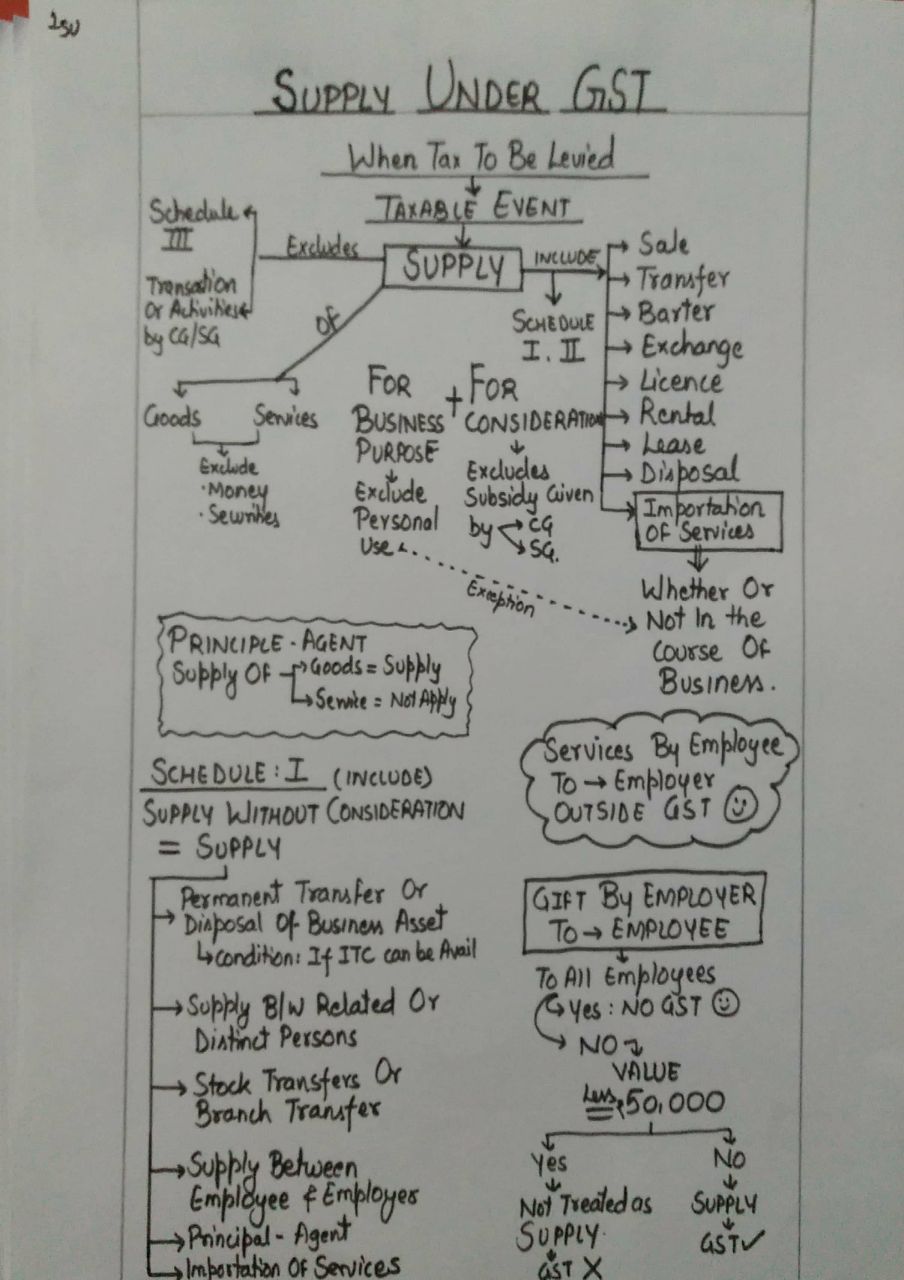 SUPPLY UNDER GST
When Tax To Be Levied
TAXABLE EVENT
SUPPLY
Excludes
Schedule
III
Transation
Or Activities
by CG/SG
INCLUDE
SCHEDULE
I, II
Sale
Transfer
Barter
Exchange
Licence
Rental
Lease
Disposal
Importation
Of Services
Whether Or
Not In the
Course Of
Business.
OF
Goods Services
Exclude
· Money
· Securities
FOR
BUSINESS
PURPOSE
Exclude
Personal
Use
+
FOR
CONSIDERATION
Excludes
Subsidy Given
by → CG
→ SG.
Exception
PRINCIPLE - AGENT
Supply Of → Goods = Supply
→ Service = Not Apply
Services By Employee
To → Employer
OUTSIDE GST ☺
SCHEDULE: I (INCLUDE)
SUPPLY WITHOUT CONSIDERATION
= SUPPLY
Permanent Transfer Or
Disposal Of Business Asset
↳ condition: If ITC can be Avail
Supply B/W Related Or
Distinct Persons
Stock Transfers Or
Branch Transfer
Supply Between
Employee & Employer
Principal - Agent
Importation Of Services
GIFT BY EMPLOYER
TO → EMPLOYEE
To All Employees
Yes : NO GST ☺
NO
VALUE
Less 50,000
Yes
Not Treated as
SUPPLY
GST X
NO
SUPPLY
GST ✓